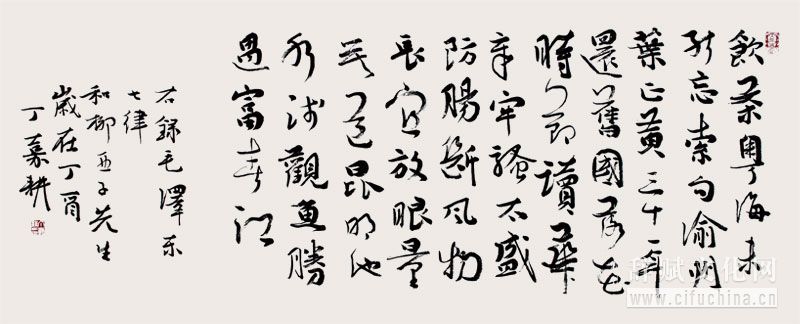 飲茶粵海未
能忘索句渝州
葉正黃三十一年
還舊國落花
時節讀華
章牢騷太盛
防腸斷風物
長宜放眼量
莫道昆明池
水淺觀魚勝
過富春江
右錄毛澤東
七律
和柳亞子先生
歲在丁酉
丁嘉耕
辞赋文化网
www.cifuchina.cn